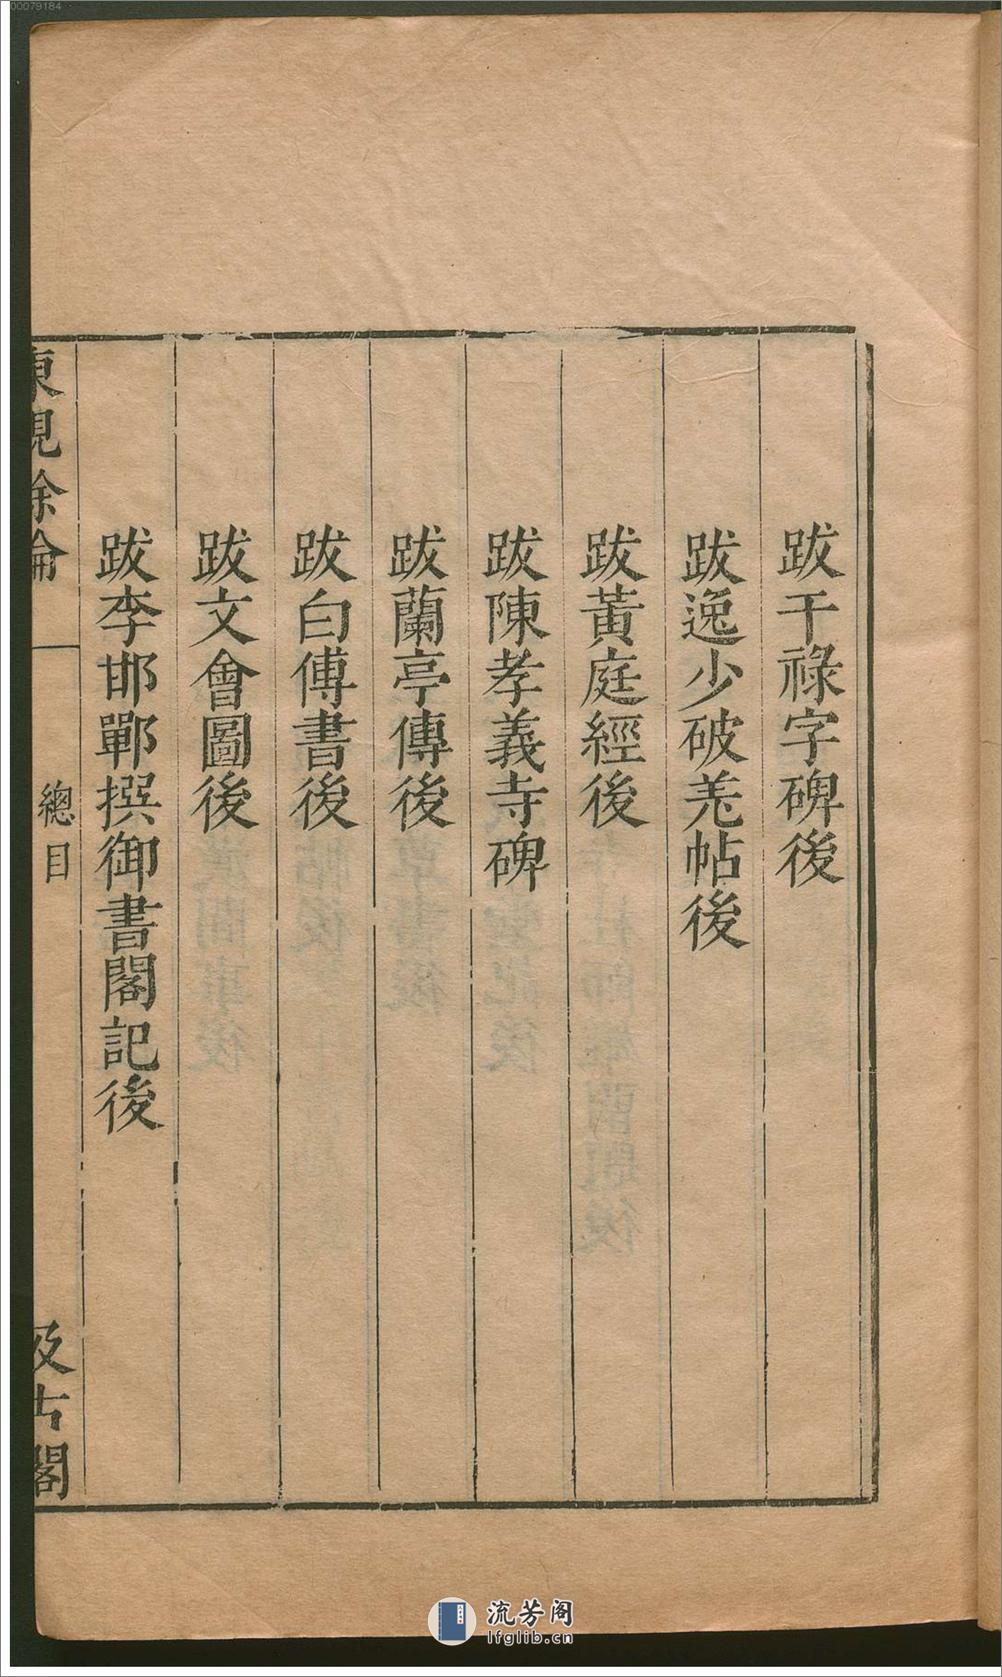 跋干祿字碑後
跋逸少破羌帖後
跋黃庭經後
跋陳孝義寺碑
跋蘭亭傳後
跋白傅書後
跋文會圖後
跋李邯鄲撰御書閣記後
東觀餘論
總目
汲古閣
00079184
流芳阁
lfglib.cn